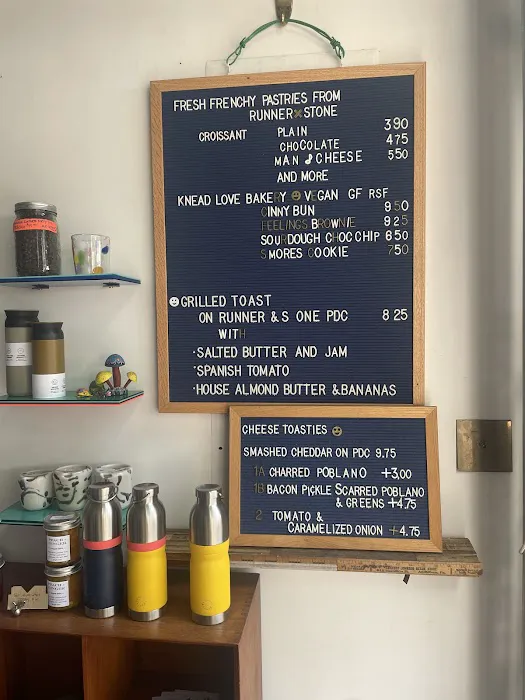 FRESH FRENCHY PASTRIES FROM
RUNNER STONE
CROISSANT PLAIN 390
CHOCOLATE 475
MAN CHEESE 550
AND MORE
KNEAD LOVE BAKERY VEGAN GF RSF
CINNY BUN 950
FEELINGS BROWNIE 925
SOURDOUGH CHOC CHIP 850
SMORES COOKIE 750
GRILLED TOAST
ON RUNNER & S ONE PDC 8 25
WITH
·SALTED BUTTER AND JAM
·SPANISH TOMATO
·HOUSE ALMOND BUTTER & BANANAS
CHEESE TOASTIES
SMASHED CHEDDAR ON PDC 9.75
1A CHARRED POBLANO +3,00
1B BACON PICKLE SCARRED POBLANO
& GREENS +4.75
2 TOMATO &
CARAMELIZED ONION +4.75